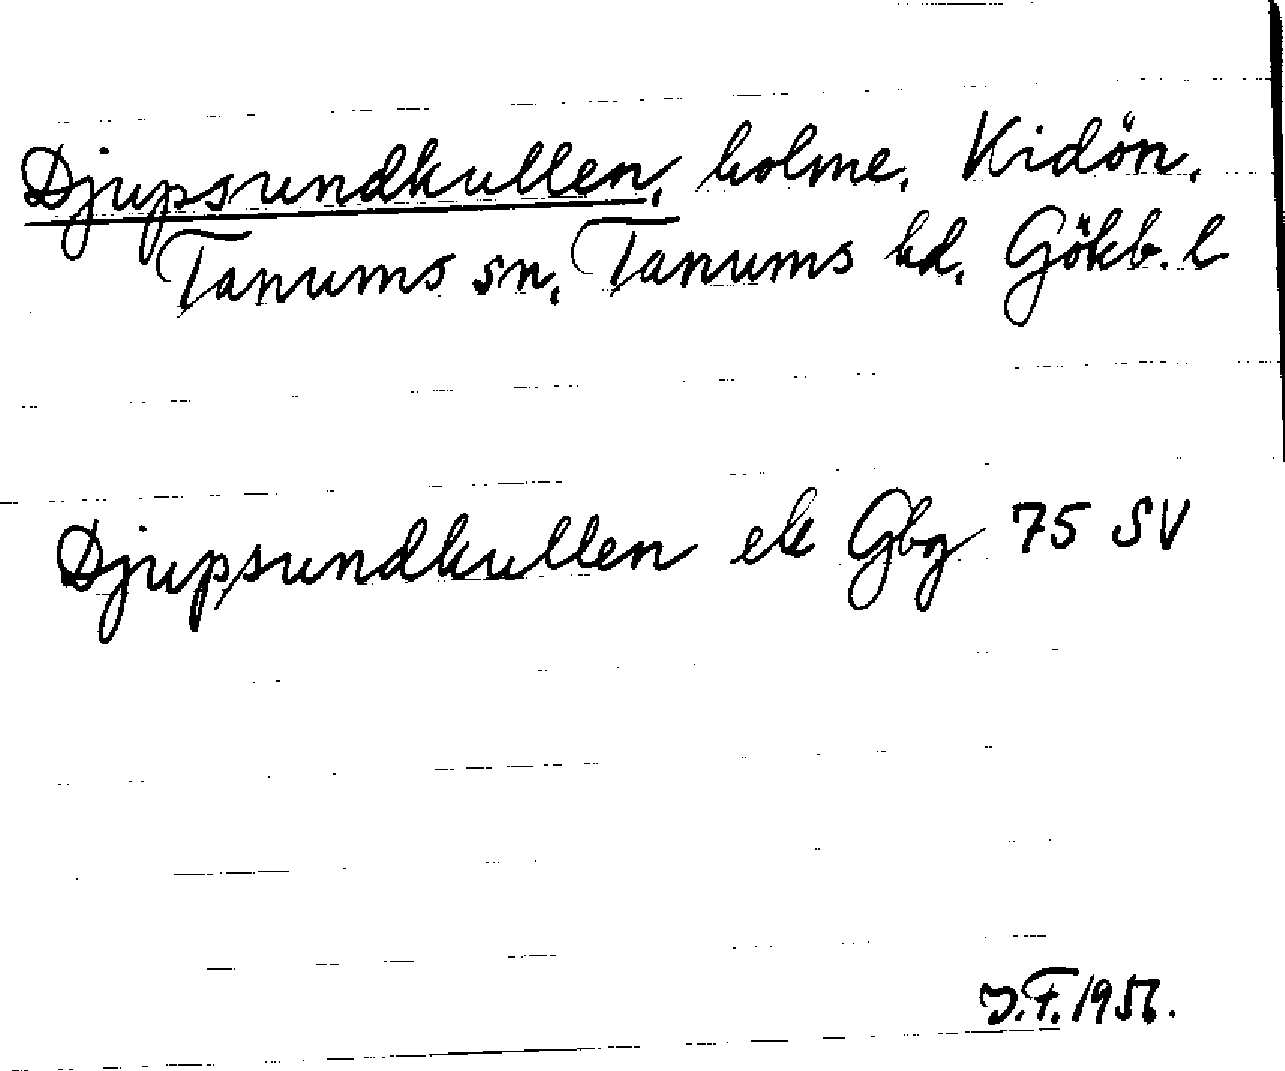 Djupsundkullen, holme, Kidön.
Tanums sn, Tanums hd, Gökb. l
Djupsundkullen ek Gbg 75 SV
J.F. 1956.